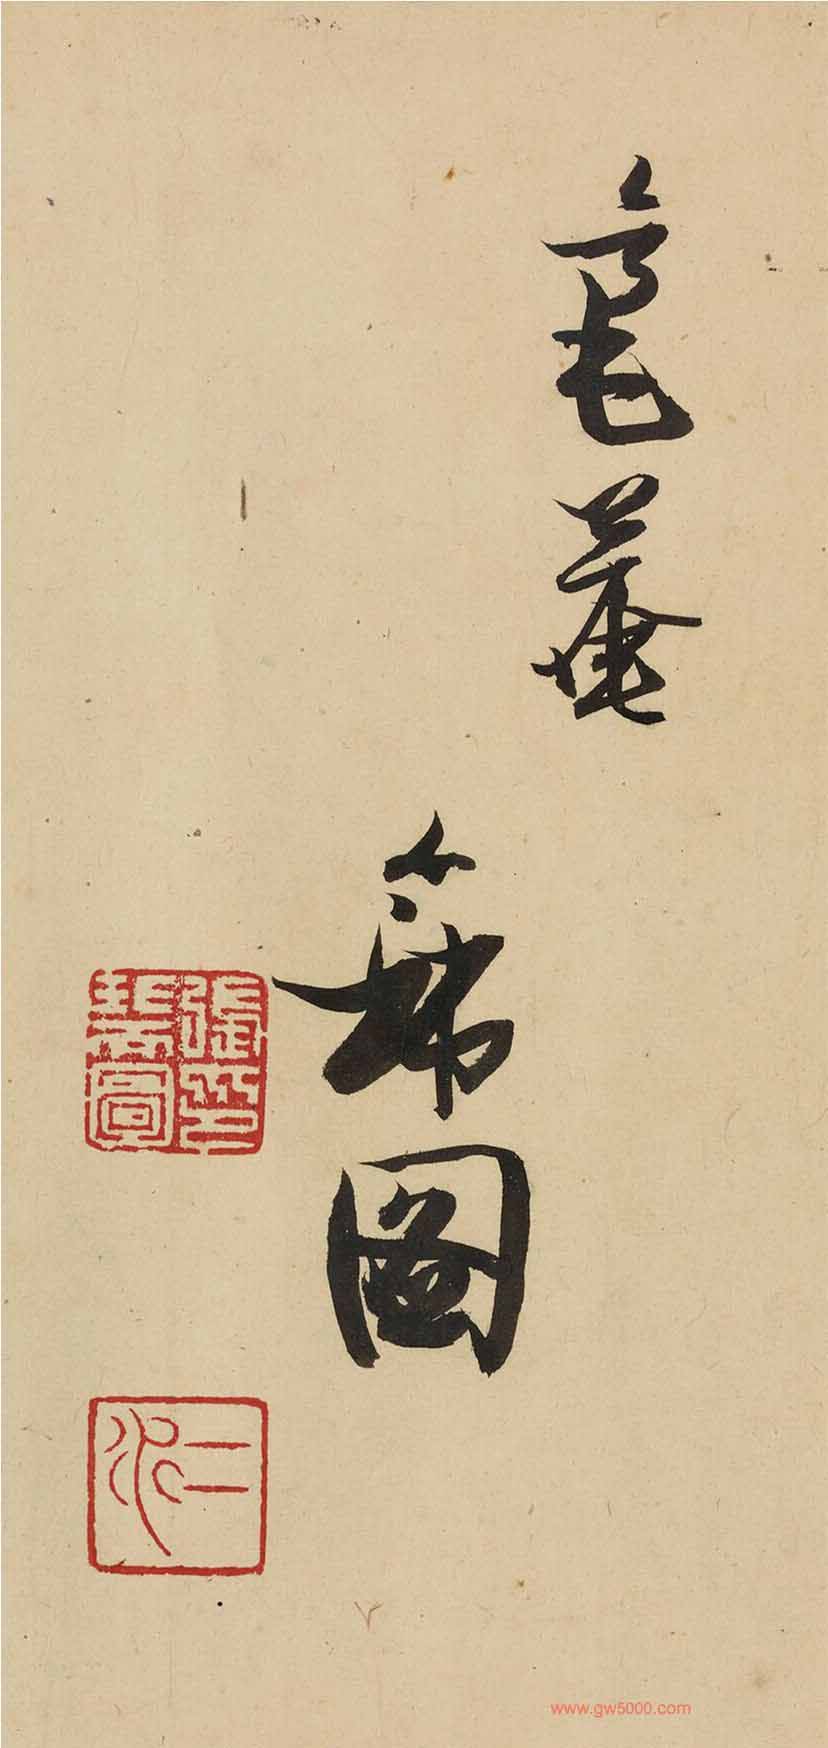 毫菴
瑞圖
張瑞圖印
二水
www.gw5000.com